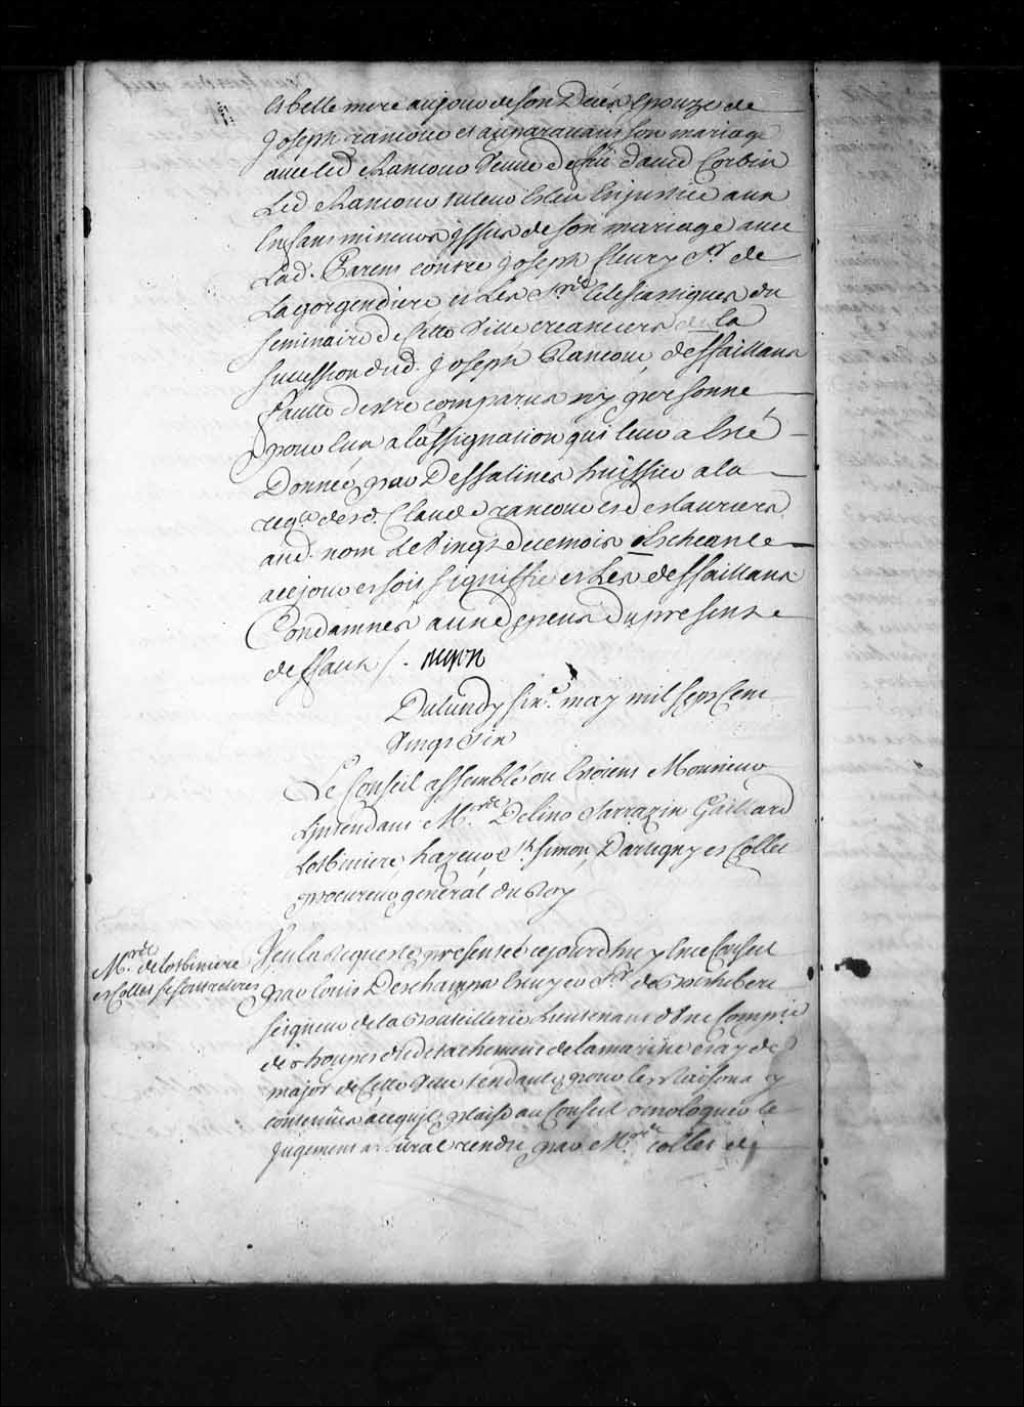 et belle mere au jour de son Deces Epouze de
Joseph rancour et auparavant son mariage
avec led Rancour veuve de feu david Corbin
Led Rancour tuteur Esleu En justice aux
Enfans mineurs jssus de son mariage avec
Lad. Parent contre Joseph fleury Sr de
La gorgendiere et Les Srs Eclesiastiques du
seminaire de Cette Ville creanciers de la
succession dud. Joseph Rancour, deffaillans
faulte destre comparus ny personne
pour Eux a lassignation qui leur a Esté
Donnée par Dessalines huissier a la
reqte desd. Claude rancour et deslauriers
aud. nom le Vingt du mois Escheante
a ce jour et soit signiffié et Les deffaillans
Condamnés aux depens du present
deffaut /.
Du lundy sixe may mil sept Cent
Vingt Six
Le Conseil assemblé ou Estoient Monsieur
Lintendant Mrs Delino Sarrazin Gaillard
Lotbiniere, hazeur St simon, Dartigny et Collet
procureur general du Roy
Mrs de Lotbiniere
et Collet se sont retirés
Veu la Requeste presentée ce jourd'huy En ce Conseil
par Louis Deschamps Ecuyer Sr de Boishebert
seigneur de la Bouteillerie Lieutenant d'Une Compie
des troupes du detachement de la marine et ayde
major de Cette Ville tendante pour les Raisons y
contenües a ce qu'jl plaise au Conseil omologuer le
jugement arbitral rendu par Mrs collet et